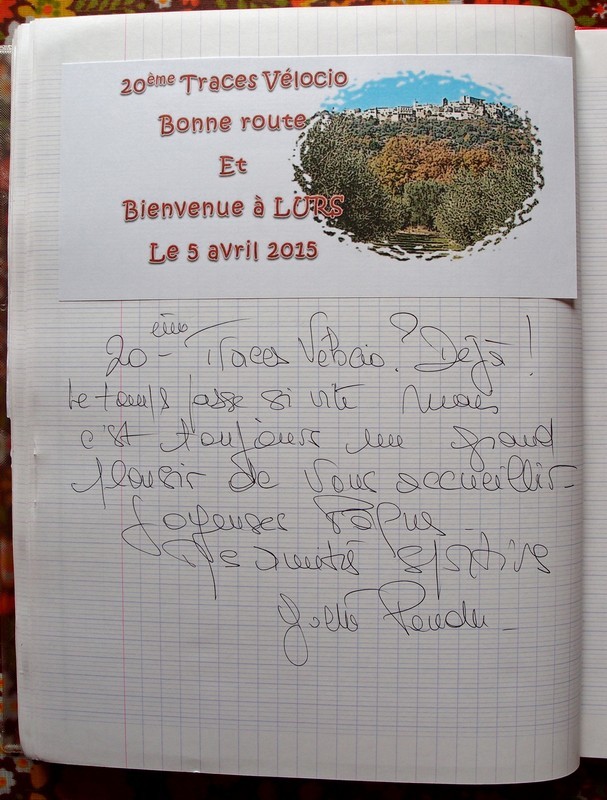 20ème Traces Vélocio
Bonne route
Et
Bienvenue à LURS
Le 5 avril 2015
20ème Traces Vélocio? Déjà!
Le temps passe si vite mais
c'est toujours un grand
plaisir de vous accueillir-
Joyeuses Pâques
Mes amitiés sportives